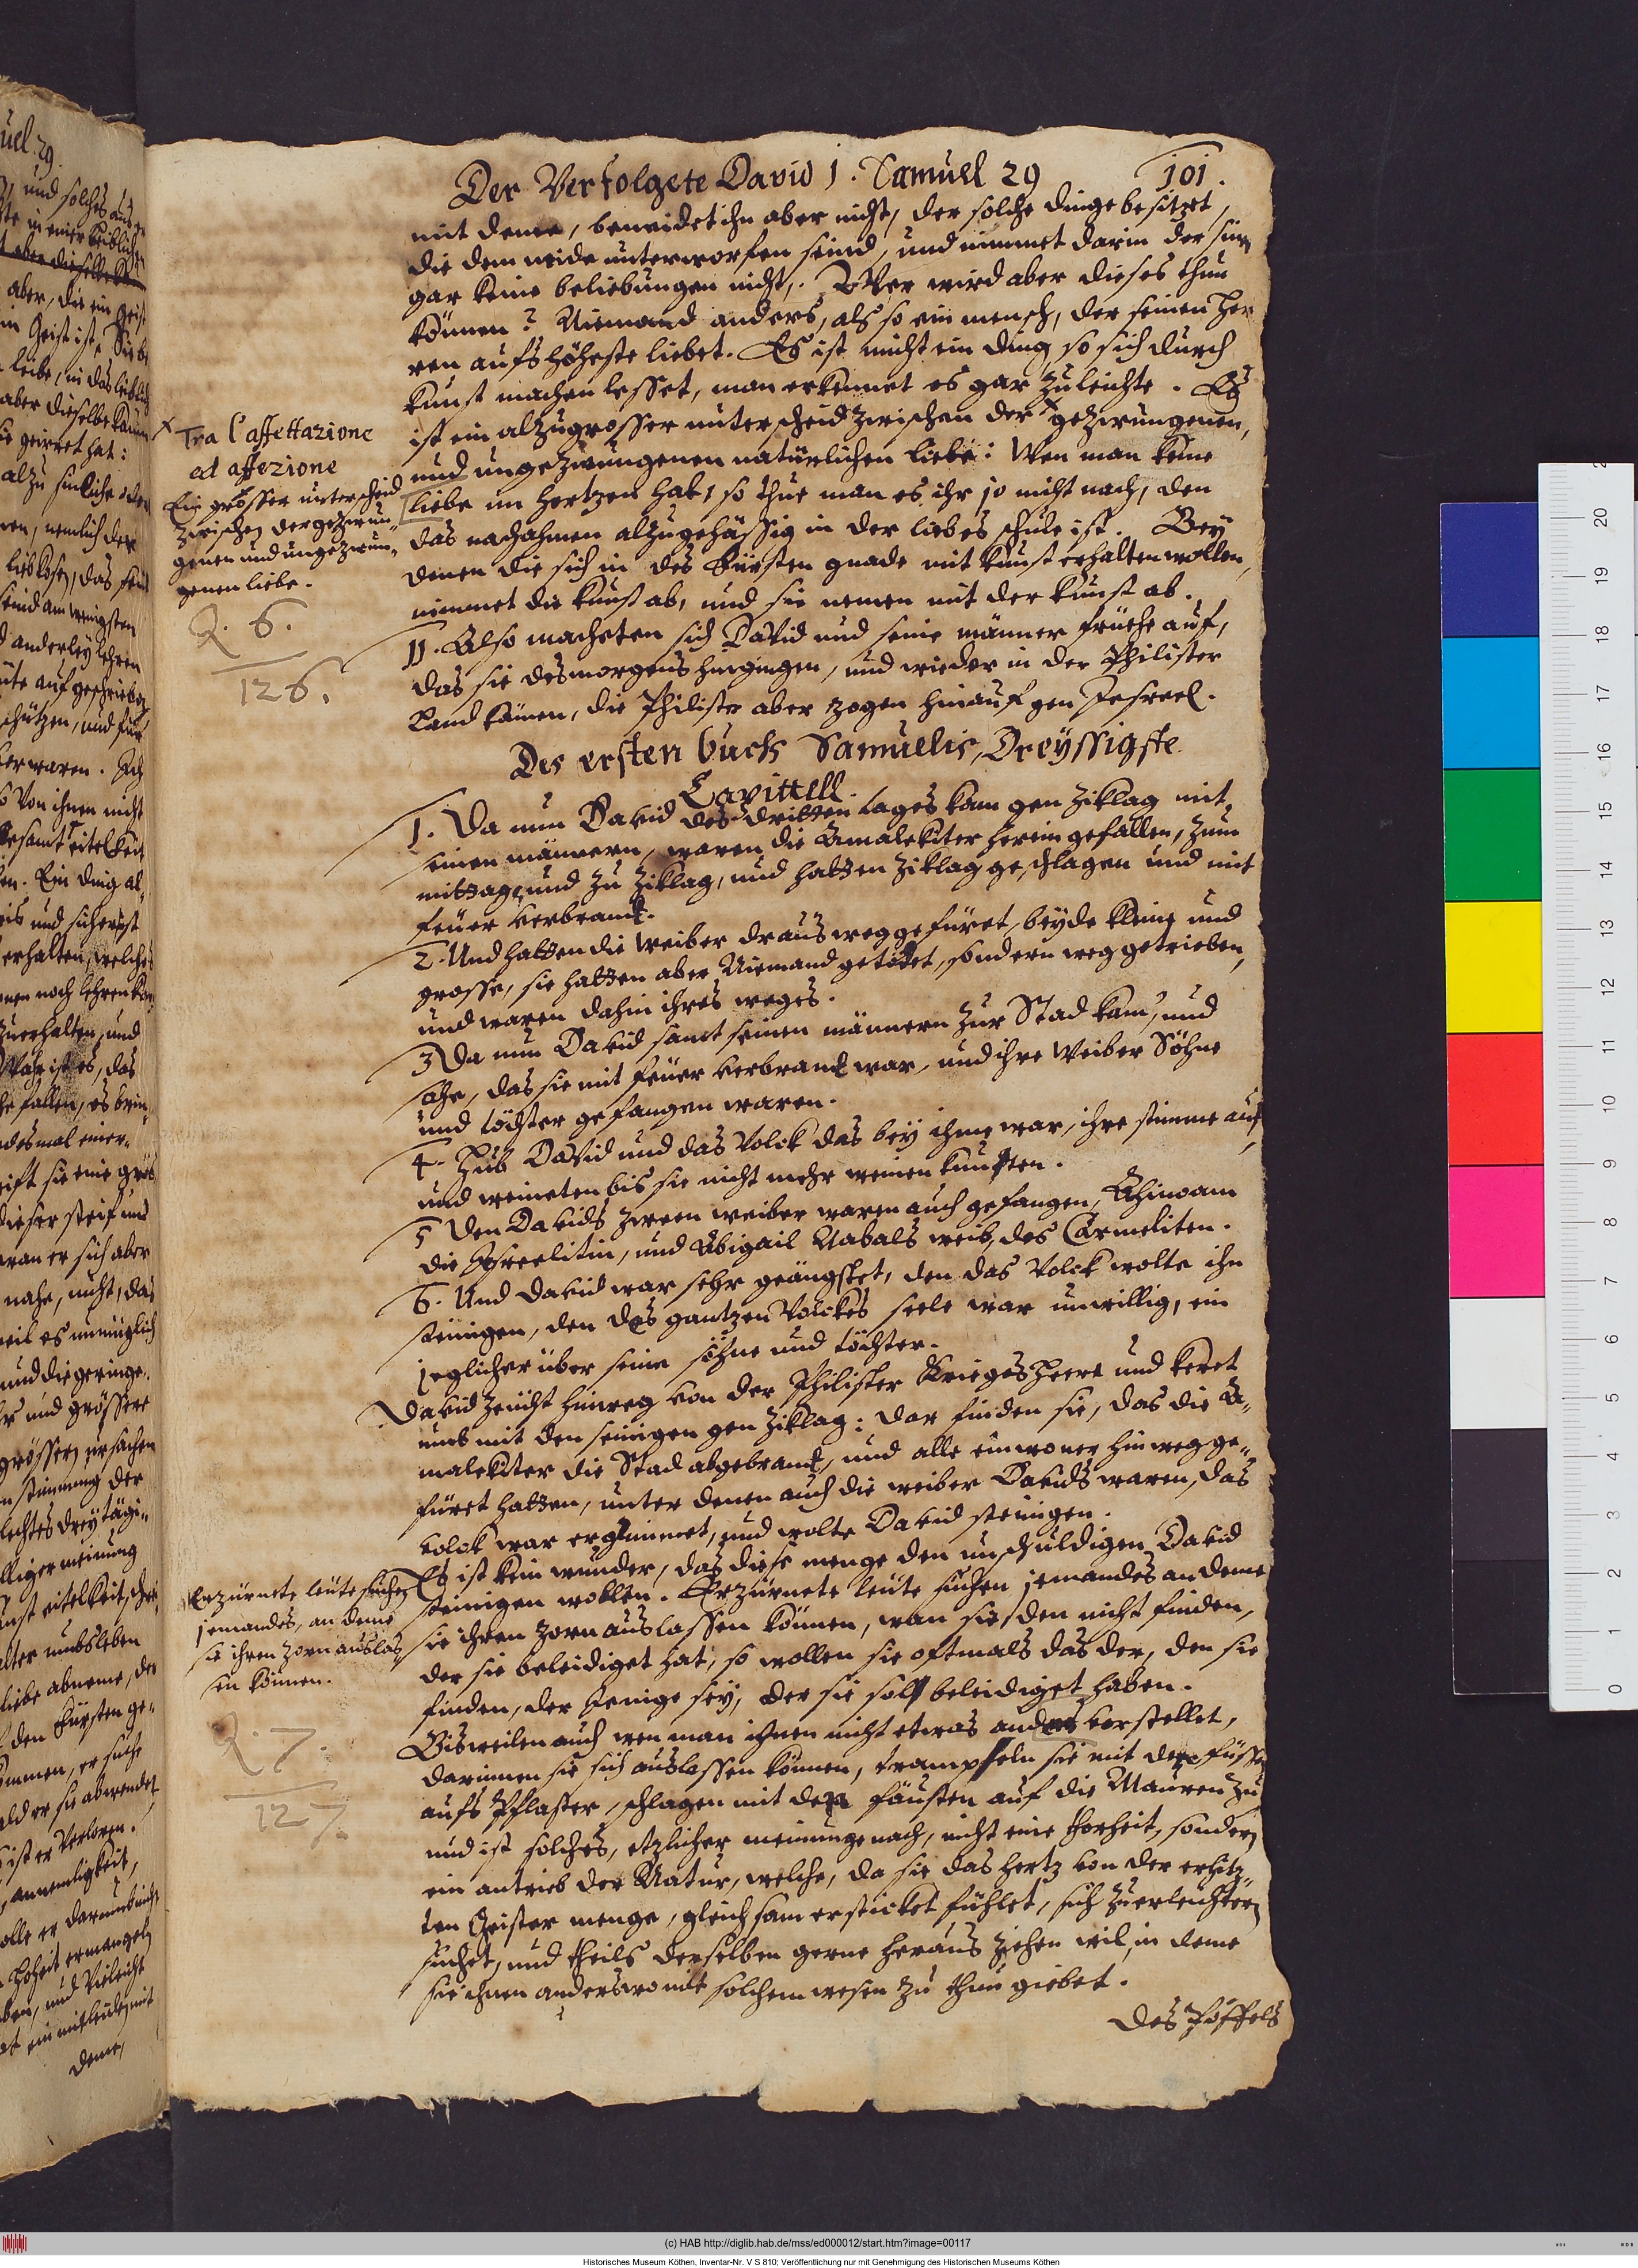 Der Verfolgete David 1. Samuel 29 101.
mit deme, beneidet ihn aber nicht, der solche dinge besitzet,
die dem neide unterworfen seind, und nimmet darin der sin
gar keine beliebungen nicht,. Wer wird aber dieses thun
können? Niemand anders, als so ein mensch, der seinen Her
ren aufs höheste liebet. Es ist nicht ein ding so sich durch
kunst machen lesset, man erkennet es gar zuleichte. Es
ist ein alzugrosser unterscheid zwischen der gezwungenen,
und ungezwungenen natürlichen liebe: Wen man keine
liebe im hertzen hat, so thue man es ihr jo nicht nach, den
das nachahmen alzugehässig in der liebes schule ist. Bey
denen die sich in des Fürsten gnade mit kunst erhalten wollen,
nimmet die kunst ab, und sie nemen mit der kunst ab.
11. Also macheten sich David und seine männer früehe auf,
das sie des morgens hingingen, und wieder in der Philister
Land kämen, die Philister aber zogen hinauf gen Jesreel.
Des ersten buchs Samuelis, Dreyssigste
Capittell.
1. Da nun David des dritten tages kam gen Ziklag mit
seinen männern, waren die Amalekiter herein gefallen, zum
mittage und zu Ziklag, und hatten Ziklag geschlagen und mit
feuer verbrant.
2. Und hatten die Weiber draus weggefüret, beyde klein und
grosse, sie hatten aber Niemand getötet, sondern weggetrieben,
und waren dahin ihres weges.
3 Da nun David samt seinen männern zur Stad kam, und
sahe, das sie mit feuer verbrant war, und ihre Weiber Söhne
und töchter gefangen waren.
4. Hub David und das Volck das bey ihme war, ihre stimme auf,
und weineten bis sie nicht mehr weinen kunten.
5 Den Davids zween weiber waren auch gefangen, Ahinoam
die Jsreelitin, und Abigail Nabals weib, des Carmeliten.
6. Und David war sehr geängstet, den das Volck wolte ihn
steinigen, den des gantzen Volckes seele war unwillig, ein
jeglicher über seine söhne und töchter.
David zeucht hinweg von der Philister Kriegesheere und keret
umb mit den seinigen gen Ziklag: Dar finden sie, das die A-
malekiter die Stad abgebrant, und alle einwoner hinweg ge-
füret hatten, unter denen auch die weiber Davids waren, das
volck war ergrimmet, und wolte David steinigen.
Es ist kein wunder, das diese menge den unschuldigen David
steinigen wollen. Erzürnete leute suchen jemandes an deme
sie ihren zorn auslassen können, wan sie den nicht finden,
der sie beleidiget hat, so wollen sie oftmals das der, den sie
finden, der Jenige sey, der sie sol beleidiget haben.
Bisweilen auch wen man ihnen nicht etwas anders vorstellet,
darinnen sie sich auslassen können, trampeln sie mit den füssen
aufs Pflaster, schlagen mit den fäusten auf die Mauren zu
und ist solches, etzlicher meinunge nach, nicht eine thorheit, sondern
ein antrieb der Natur, welche, da sie das hertz von der erhitz-
ten Geister menge, gleichsam ersticket fühlet, sich zuerleuchtern
suchet, und theils derselben gerne heraus ziehen wil, in deme
sie ihnen anderswo mit solchem wesen zu thun giebet.
des Pöffels
Tra l'affettazione
ed affezione
Ein grosser unterscheid
zwischen der gezwun-
genen und ungezwun-
genen liebe.
Q. 6.
126.
Erzürnete leute suchen
jemandes, an deme
sie ihren zorn auslas
sen können.
Q. 7.
127.
uel. 29.
und solches
aber, die ein Geist
ein Geist ist,
aber dieselbe kaum
sie geirret hat:
nemlich der
liebkosen, das
seind am wenigsten
anderley lehren
auf geschrieben
schützen, und für
waren. Ich
Von ihnen nicht
gesamt eitelkeit
Ein ding al-
und sicherst
erhalten, welches
noch lehren
zuerhalten, und
ist es, das
fallen, es
desmal einer
sie eine
dieser steif und
wan er sich aber
nahe, nicht, das
weil es unmüglich
und die geringe
und grössere
grössern ursachen
stimmung der
drey tägi-
lliger meinung
eitelkeit,
umbs leben
liebe abneme, der
den Fürsten ge-
kommen, er suche
er sie abwendet
ist er Verloren.
annemligkeit,
wolle er darumb nicht
Hoheit ermangeln
und Vieleicht
ein mitleiden mit
deme,
(c) HAB http://diglib.hab.de/mss/ed000012/start.htm?image=00117
Historisches Museum Köthen, Inventar-Nr. V S 810; Veröffentlichung nur mit Genehmigung des Historischen Museums Köthen
0 1 2 3 4 5 6 7 8 9 10 11 12 13 14 15 16 17 18 19 20